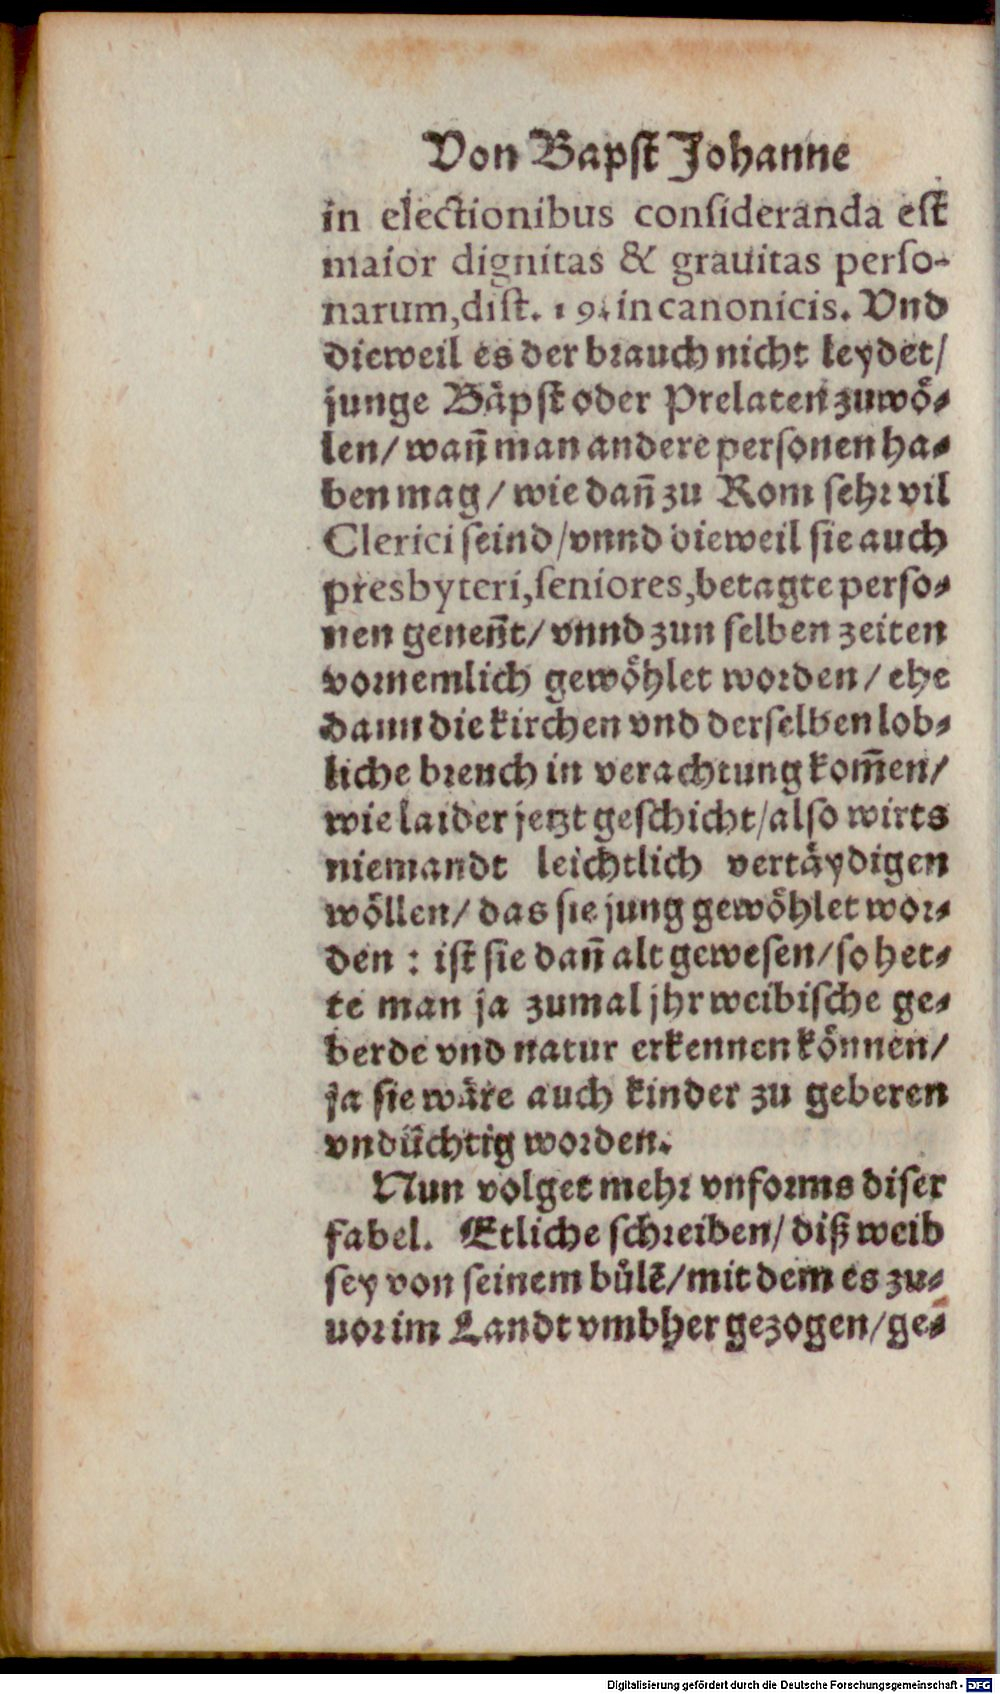 Von Bapst Johanne
in electionibus consideranda est
maior dignitas & grauitas perso-
narum, dist. 19. in canonicis. Vnd
dieweil es der brauch nicht leydet/
junge Bäpst oder Prelaten zuwö-
len/ wañ man andere personen ha-
ben mag/ wie dañ zu Rom sehr vil
Clerici seind/ vnnd dieweil sie auch
presbyteri, seniores, betagte perso-
nen geneñt/ vnnd zun selben zeiten
vornemlich gewöhlet worden/ ehe
dann die kirchen vnd derselben lob-
liche breuch in verachtung kom̃en/
wie laider jetzt geschicht/ also wirts
niemandt leichtlich vertäydigen
wöllen/ das sie jung gewöhlet wor-
den : ist sie dañ alt gewesen/ so het-
te man ja zumal jhr weibische ge-
berde vnd natur erkennen können/
ja sie wäre auch kinder zu geberen
vndüchtig worden.
Nun volget mehr vnforms diser
fabel. Etliche schreiben/ diß weib
sey von seinem bůlẽ/ mit dem es zu-
uor im Landt vmbher gezogen/ ge-
Digitalisierung gefördert durch die Deutsche Forschungsgemeinschaft - DFG